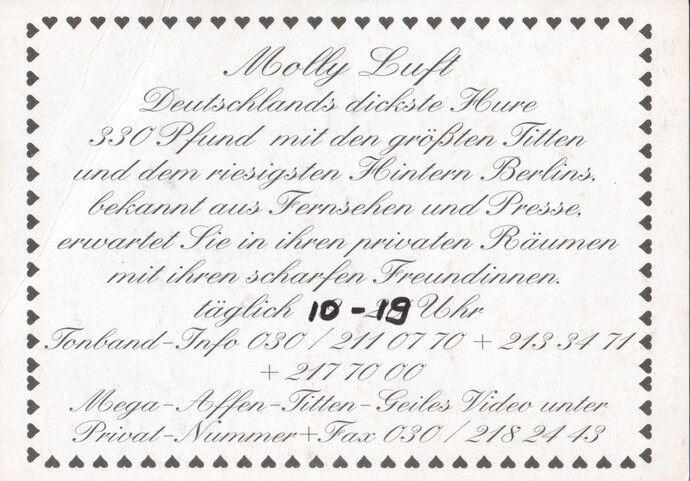 Molly Luft
Deutschlands dickste Hure
330 Pfund mit den größten Titten
und dem riesigsten Hintern Berlins,
bekannt aus Fernsehen und Presse,
erwartet Sie in ihren privaten Räumen
mit ihren scharfen Freundinnen.
täglich 10 - 19 Uhr
Tonband-Info 030 / 211 07 70 + 213 34 71
+ 217 70 00
Mega-Affen-Titten-Geiles Video unter
Privat-Nummer+Fax 030 / 218 24 43